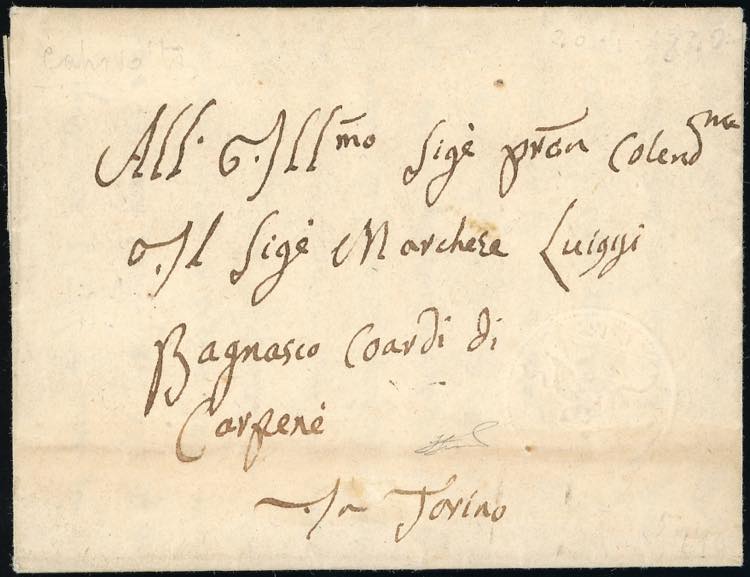 All' Ill.mo Sig.e Pron Colend.mo
Il Sig.e Marchese Luiggi
Bagnasco Coardi di
Carpené
In Torino